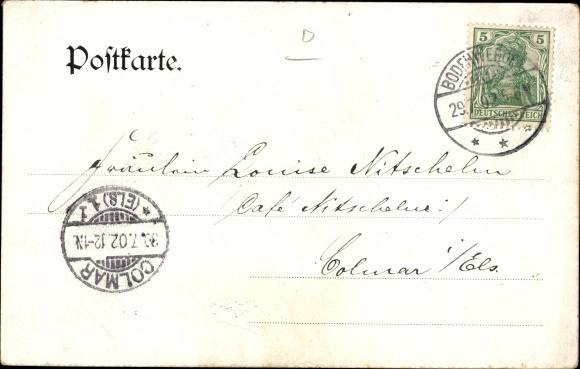 D
Postkarte.
5 5
DEUTSCHES REICH
29. 02
Fräulein Louise Nitschelm
Café Nitschelm:/
Colmar i/Els.
COLMAR
30.7.02.12-1N.
* (ELS) 1 f